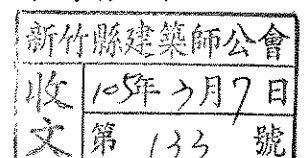 新竹縣建築師公會
收文
105年3月7日
第 133 號